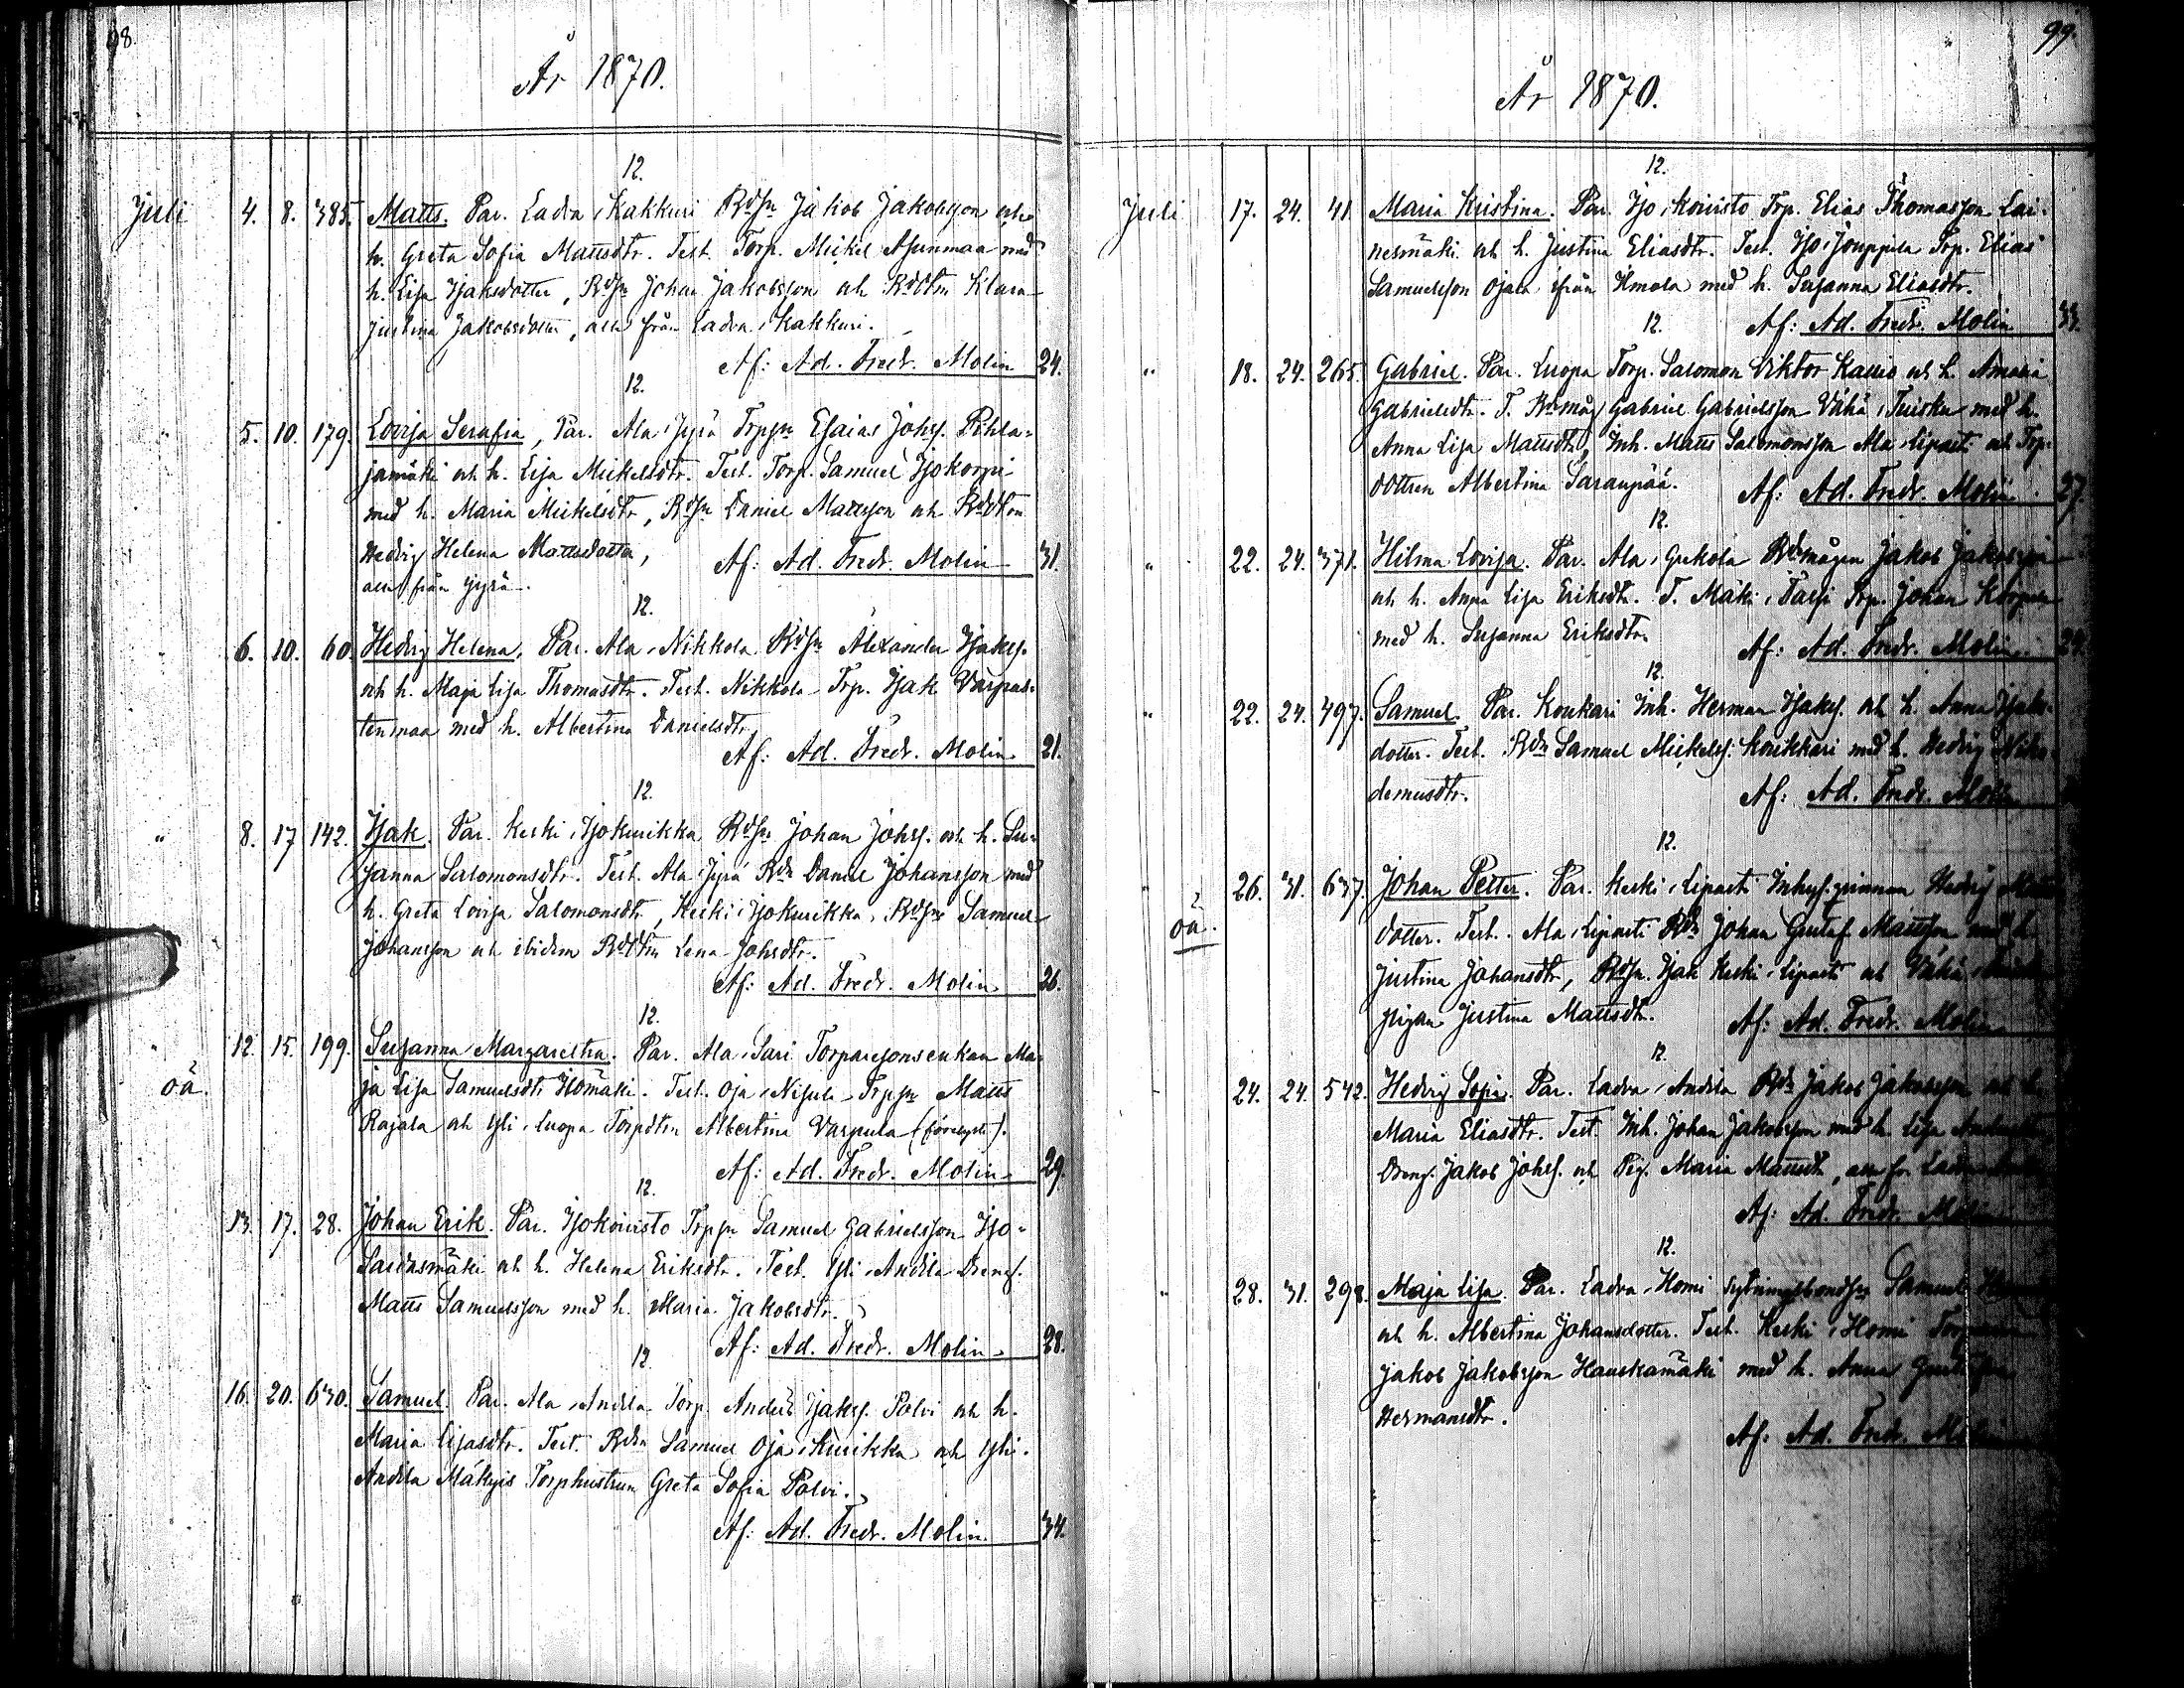 98.
År 1870.
12.
Juli 4. 8. 385. Matts. Par. Ladva, Kakkuri Bdsn Jakob Jakobsson och
h. Greta Sofia Mattsdtr. Test. Torp. Mickel Asunmaa med
h. Lisa Isaksdotter, Bdsn Johan Jakobsson och Bddtrn Klara
Justina Jakobsdotter, alla från Ladva, Kakkuri.
Af: Ad. Fredr. Molin 24.
12.
5. 10. 179. Lovisa Serafia, Par. Ala, Jyrä Trpsn Esaias Johss. Pihla-
jamäki och h. Lisa Mickelsdtr. Test. Torp. Samuel Isokorpi
med h. Maria Mickelsdtr, Bdsn Daniel Mattsson och Bddtrn
Hedvig Helena Mattsdotter,
alla från Jyrä.
Af: Ad. Fredr. Molin 31.
12.
6. 10. 60. Hedvig Helena. Par. Ala, Nikkola Bdsn Alexander Isakss.
och h. Maja Lisa Thomasdtr. Test. Nikkola Trp. Isak Varpas-
tenmaa med h. Albertina Danielsdtr.
Af: Ad. Fredr. Molin 21.
12.
" 8. 17 142. Isak. Par. Keski, Isokurikka Bdsn Johan Johss. och h. Su-
sanna Salomonsdtr. Test. Ala Jyrä Bdn Daniel Johansson med
h. Greta Lovisa Salomonsdtr, Keski, Isokurikka, Bdsn Samuel
Johansson och ibidem Bddtrn Lena Johsdtr.
Af: Ad. Fredr. Molin 26.
12.
" 12. 15. 199. Susanna Margaretha. Par. Ala, Sari Torparesonsenkan Ma-
oä. ja Lisa Samuelsdtr Homäki. Test. Oja, Nisula Trpsn Matts
Rajala och Yli, Luopa Torpdtrn Albertina Varpula
Af: Ad. Fredr. Molin 29.
12.
13. 17. 28. Johan Erik. Par. Isokoivisto Trpsn Samuel Gabrielsson Iso-
Sarvasmäki och h. Helena Eriksdtr. Test. Yli, Andila Drengs.
Matts Samuelsson med h. Maria Jakobsdtr.
Af: Ad. Fredr. Molin 28.
12.
16. 20. 630. Samuel. Par. Ala, Andila Torp. Anders Isakss. Polvi och h.
Maria Lisasdtr. Test. Bdn Samuel Oja, Kurikka och Yli.
Andila Torphustrun Greta Sofia Polvi.
Af: Ad. Fredr. Molin. 34.
99.
År 1870.
12.
Juli 17. 24. 41. Maria Kristina. Par. Iso, Koivisto Trp. Elias Thomasson Lai-
nesmäki och h. Justina Eliasdtr. Test. Iso, Jouppila Trp. Elias
Samuelsson Ojala ifrån Ilmola med h. Susanna Eliasdtr.
Af: Ad. Fredr. Molin 33.
12.
" 18. 24. 265. Gabriel. Par. Luopa Torp. Salomon Viktor Kallio och h. Amalia
Gabrielsdtr. T. Bdmåg Gabriel Gabrielsson Vähä, Tuisku med h.
Anna Lisa Mattsdtr, Inh. Matts Salomonsson Ala, Lipasti och Trp-
dottren Albertina Saranpää.
Af: Ad. Fredr. Molin. 27.
12.
" 22. 24. 371. Hilma Lovisa. Par. Ala, Grekola Bdmågen Jakob Jakobsson
och h. Anna Lisa Eriksdtr. T. Mäki, Passi Trp. Johan
med h. Susanna Eriksdtr.
Af: Ad. Fredr. Molin. 24.
12.
" 22. 24. 497. Samuel. Par. Koukari Inh. Herman Isakss. och h. Anna Isaks-
dotter. Test. Bdn Samuel Mickelss. Koukkari med h. Hedvig Niko-
demusdtr.
Af: Ad. Fredr. Molin
12.
26. 31. 637. Johan Petter. Par. Keski, Lipasti Inhys.qvinnan Hedvig
oä. dotter. Test. Ala, Lipasti Bdn Johan Gustaf Mattsson med h.
Justina Johansdtr, Bdsn Isak Keski, Lipasti och Vähä,
pigan Justina Mattsdtr.
Af: Ad. Fredr. Molin
12.
24. 24. 542. Hedvig Sofia. Par. Ladva, Andila Bdn Jakob Jakobsson och h.
Maria Eliasdtr. Test. Inh. Johan Jakobsson med h. Lisa
Dreng. Jakob Johss. och Pig. Maria Mattsdtr, alla fr. Ladva
Af: Ad. Fredr. Molin
12.
" 28. 31. 298. Maja Lisa. Par. Ladva, Homi Sytningsbondsn Samuel
och h. Albertina Johansdotter. Test. Keski, Homi
Jakob Jakobsson Hauskamäki med h. Anna
Hermansdtr.
Af: Ad. Fredr. Molin